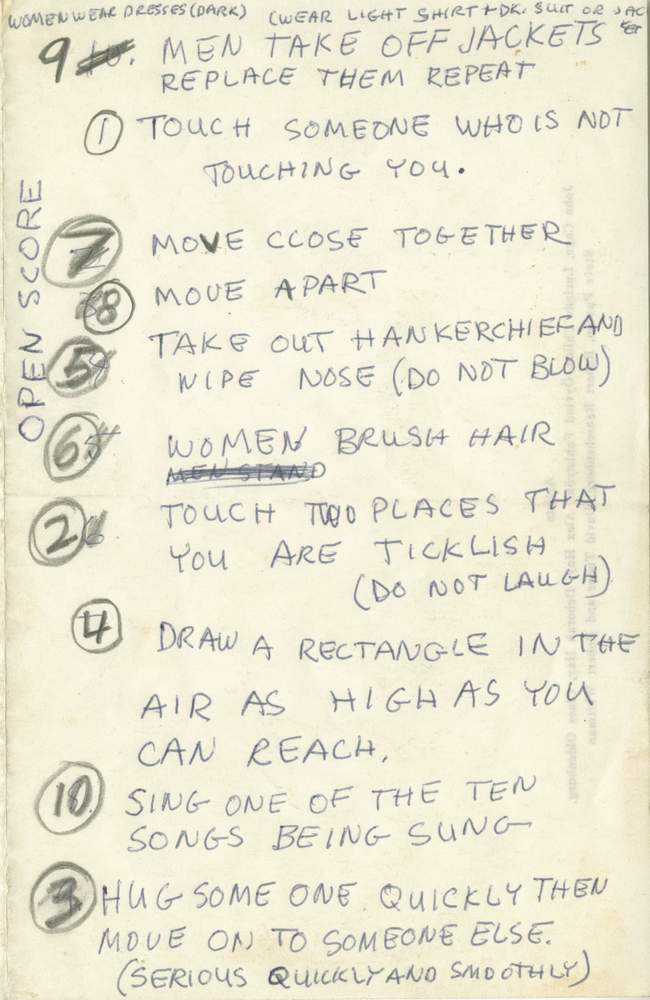 WOMEN WEAR DRESSES (DARK) (WEAR LIGHT SHIRT + DK. SUIT OR JACKET
9 MEN TAKE OFF JACKETS
REPLACE THEM REPEAT
1 TOUCH SOMEONE WHO IS NOT
TOUCHING YOU.
OPEN SCORE
7 MOVE CLOSE TOGETHER
8 MOVE APART
5 TAKE OUT HANKERCHIEF AND
WIPE NOSE (DO NOT BLOW)
6 WOMEN BRUSH HAIR
MEN STAND
2 TOUCH TWO PLACES THAT
YOU ARE TICKLISH
(DO NOT LAUGH)
4 DRAW A RECTANGLE IN THE
AIR AS HIGH AS YOU
CAN REACH.
10. SING ONE OF THE TEN
SONGS BEING SUNG
3 HUG SOME ONE QUICKLY THEN
MOVE ON TO SOMEONE ELSE.
(SERIOUS QUICKLY AND SMOOTHLY)